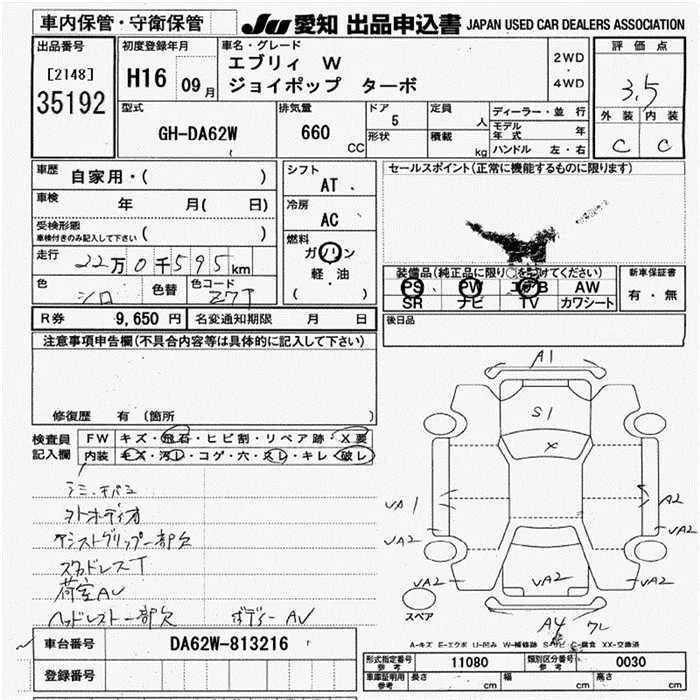 車内保管・守衛保管 JU 愛知 出品申込書 JAPAN USED CAR DEALERS ASSOCIATION
出品番号 初度登録年月 車名・グレード 評価点
[2148] H16 09月 エブリィ W 2WD
35192 ジョイポップ ターボ 4WD 3.5
型式 排気量 ドア 定員 ディーラー・並行 外装 内装
GH-DA62W 660 CC 5 人 モデル年式 年 C C
形状 積載 kg ハンドル 左・右
車歴 自家用・( ) シフト セールスポイント(正常に機能するものに限ります)
AT
車検 年 月( 日) 冷房
受検形態 AC
車検付きのみ記入して下さい ( ) 燃料
走行 22万0千595km ガソリン 装備品(純品に限り○を付けてください) 新車保証書
軽・油 PS PW エアB AW 有・無
色 シロ 色替 色コード Z7T ( ) SR ナビ TV カワシート
R券 9,650円 名変通知期限 月 日 後日品
注意事項申告欄(不具合内容等は具体的に記入して下さい)
A1
S1
修復歴 有 (箇所 )
検査員 FW キズ・飛石・ヒビ割・リペア跡・X要 X
記入欄 内装 キズ・汚レ・コゲ・穴・スレ・キレ・破レ
VA1 A2
外オーディオ
VA2 VA2
アシストグリップ一部欠
荷室AU
VA2 VA2 VA2
ヘッドレスト一部欠 ボディーAU
スペア
A4 ワレ
A-キズ E-エクボ U-凹み W-補修跡 S-サビ C-腐食 XX-交換済
車台番号 DA62W-813216
形式指定番号 参考 11080 類別区分番号 参考 0030
登録番号
車庫証明用 参考 長さ cm 幅 cm 高さ cm